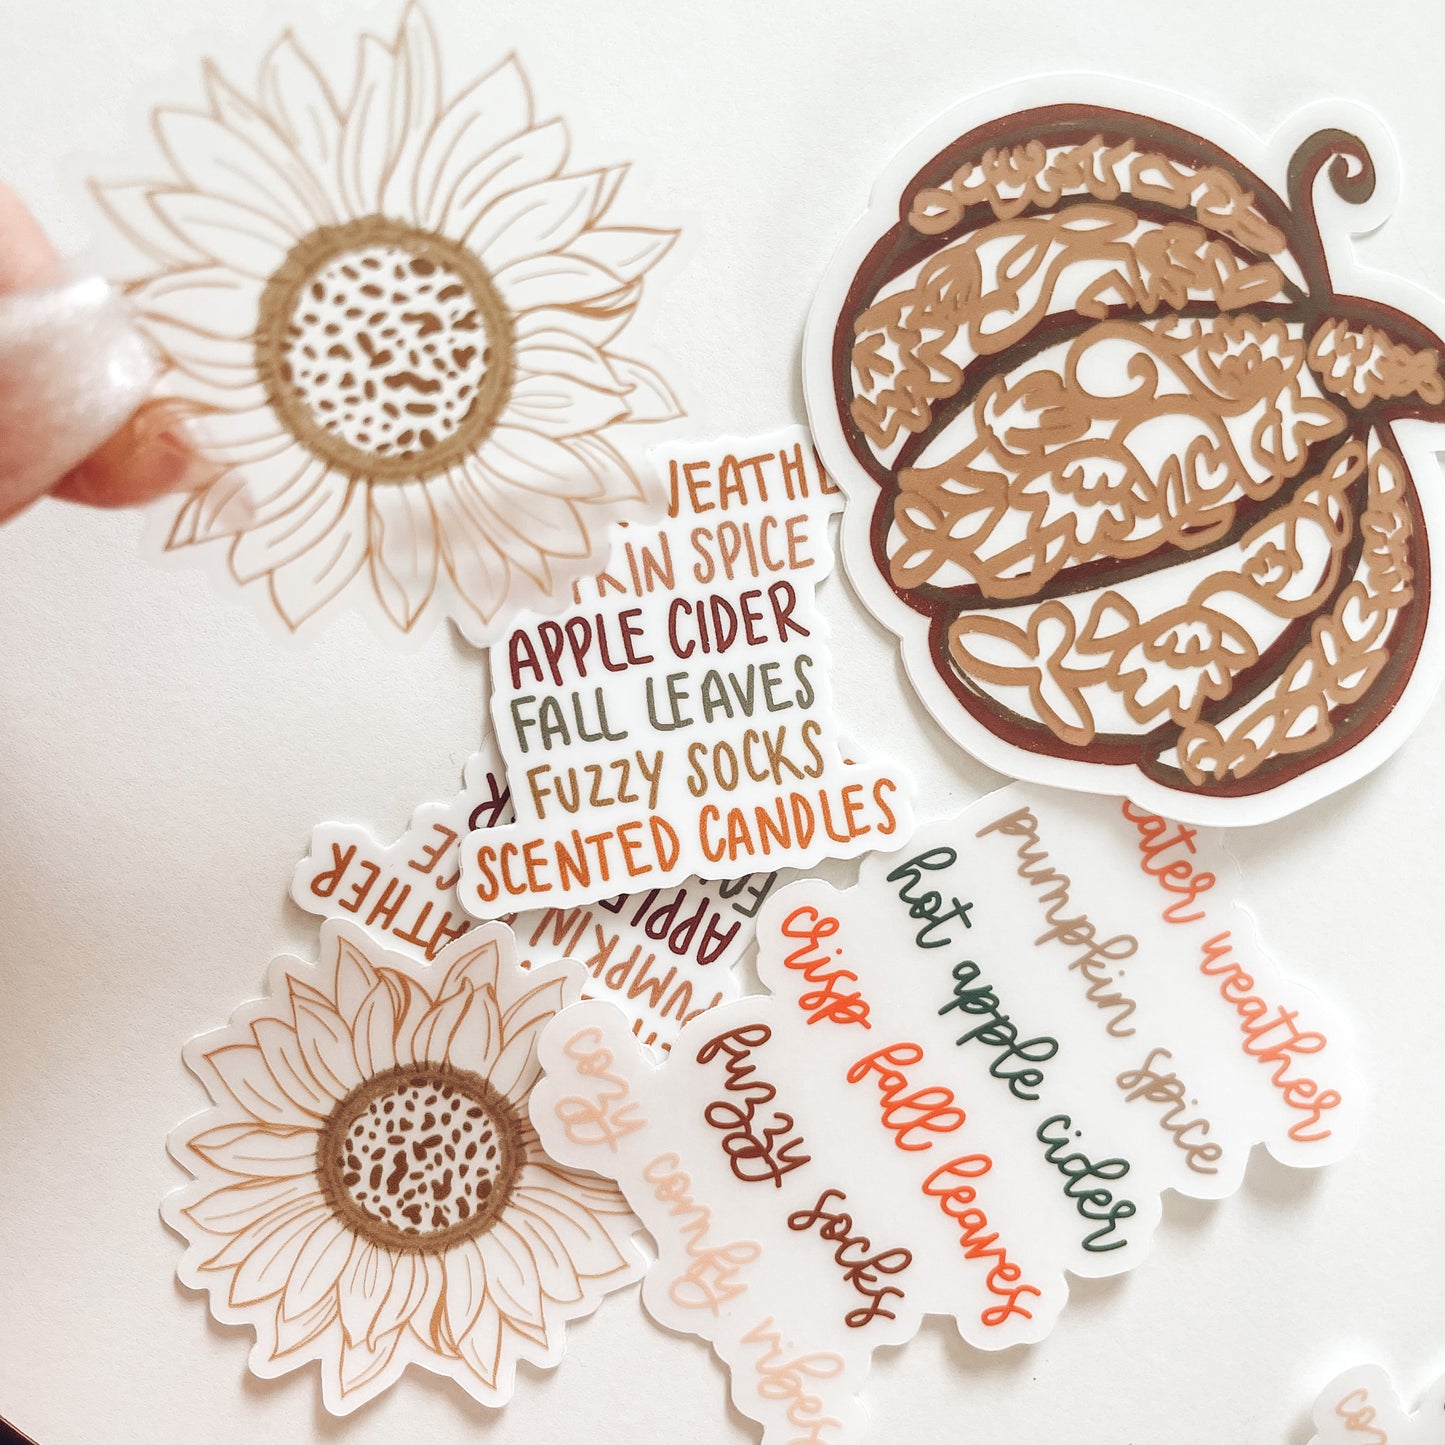 WEATHE
KIN SPICE
APPLE CIDER
FALL LEAVES
FUZZY SOCKS
SCENTED CANDLES
ATHER
PUMPKIN
APPLE
FA
eater weather
pumpkin spice
hot apple cider
crisp fall leaves
fuzzy socks
cozy comfy vibes
co